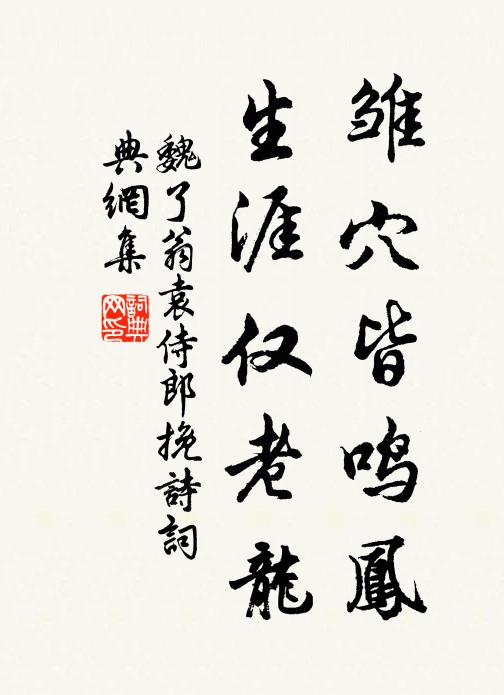 雏穴皆鸣鳳
生涯仅老龍
魏了翁袁侍郎挽詩詞
典網集
詞典
网印